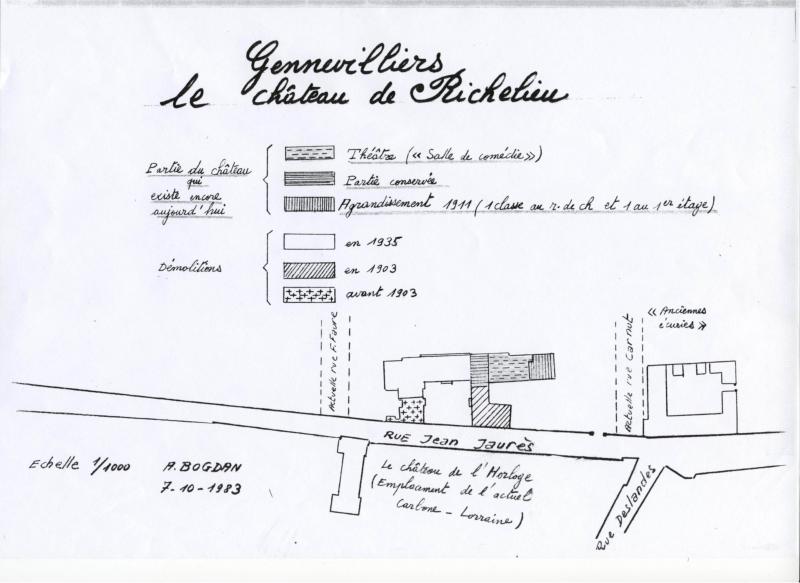 Gennevilliers
le château de Richelieu
Partie du château
qui
existe encore
aujourd'hui
Théâtre (« Salle de comédie »)
Partie conservée
Agrandissement 1911 (1 classe au r. de ch et 1 au 1er étage)
Démolitions
en 1935
en 1903
avant 1903
Actuelle rue F. Faure
Actuelle rue Carnot
« Anciennes
écuries »
RUE Jean Jaurès
Echelle 1/1000
A. BOGDAN
7-10-1983
Le château de l'Horloge
(Emplacement de l'actuel
Carbone - Lorraine)
Rue Deslandes